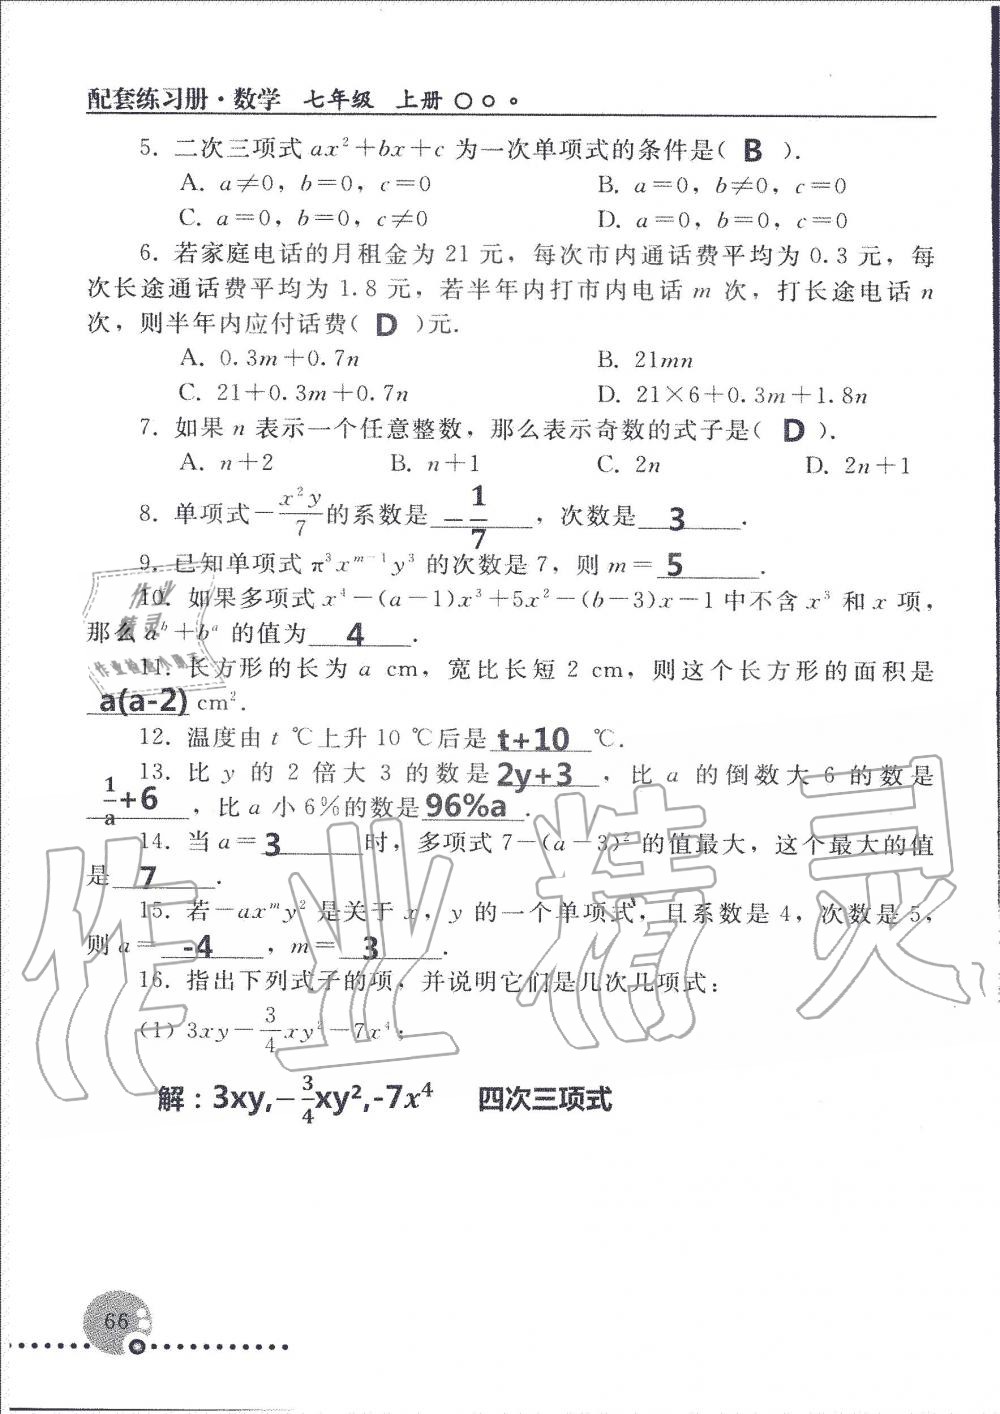 配套练习册·数学 七年级 上册
5. 二次三项式 ax²+bx+c 为一次单项式的条件是( B ).
A. a≠0, b=0, c=0 B. a=0, b≠0, c=0
C. a=0, b=0, c≠0 D. a=0, b=0, c=0
6. 若家庭电话的月租金为 21 元, 每次市内通话费平均为 0.3 元, 每
次长途通话费平均为 1.8 元, 若半年内打市内电话 m 次, 打长途电话 n
次, 则半年内应付话费( D )元.
A. 0.3m+0.7n B. 21mn
C. 21+0.3m+0.7n D. 21×6+0.3m+1.8n
7. 如果 n 表示一个任意整数, 那么表示奇数的式子是( D ).
A. n+2 B. n+1 C. 2n D. 2n+1
8. 单项式 −x²y/7 的系数是 −1/7 , 次数是 3 .
9. 已知单项式 π³xᵐ⁻¹y³ 的次数是 7, 则 m= 5 .
10. 如果多项式 x⁴−(a−1)x³+5x²−(b−3)x−1 中不含 x³ 和 x 项,
那么 aᵇ+bᵃ 的值为 4 .
11. 长方形的长为 a cm, 宽比长短 2 cm, 则这个长方形的面积是
a(a-2) cm².
12. 温度由 t ℃上升 10 ℃后是 t+10 ℃.
13. 比 y 的 2 倍大 3 的数是 2y+3 , 比 a 的倒数大 6 的数是
1/a+6 , 比 a 小 6%的数是 96%a .
14. 当 a= 3 时, 多项式 7−(a−3)² 的值最大, 这个最大的值
是 7 .
15. 若−axᵐy² 是关于 x, y 的一个单项式, 且系数是 4, 次数是 5,
则 a= -4 , m= 3 .
16. 指出下列式子的项, 并说明它们是几次几项式:
(1) 3xy−3/4xy²−7x⁴;
解：3xy,−3/4xy²,-7x⁴ 四次三项式
66
作业精灵
作业精灵